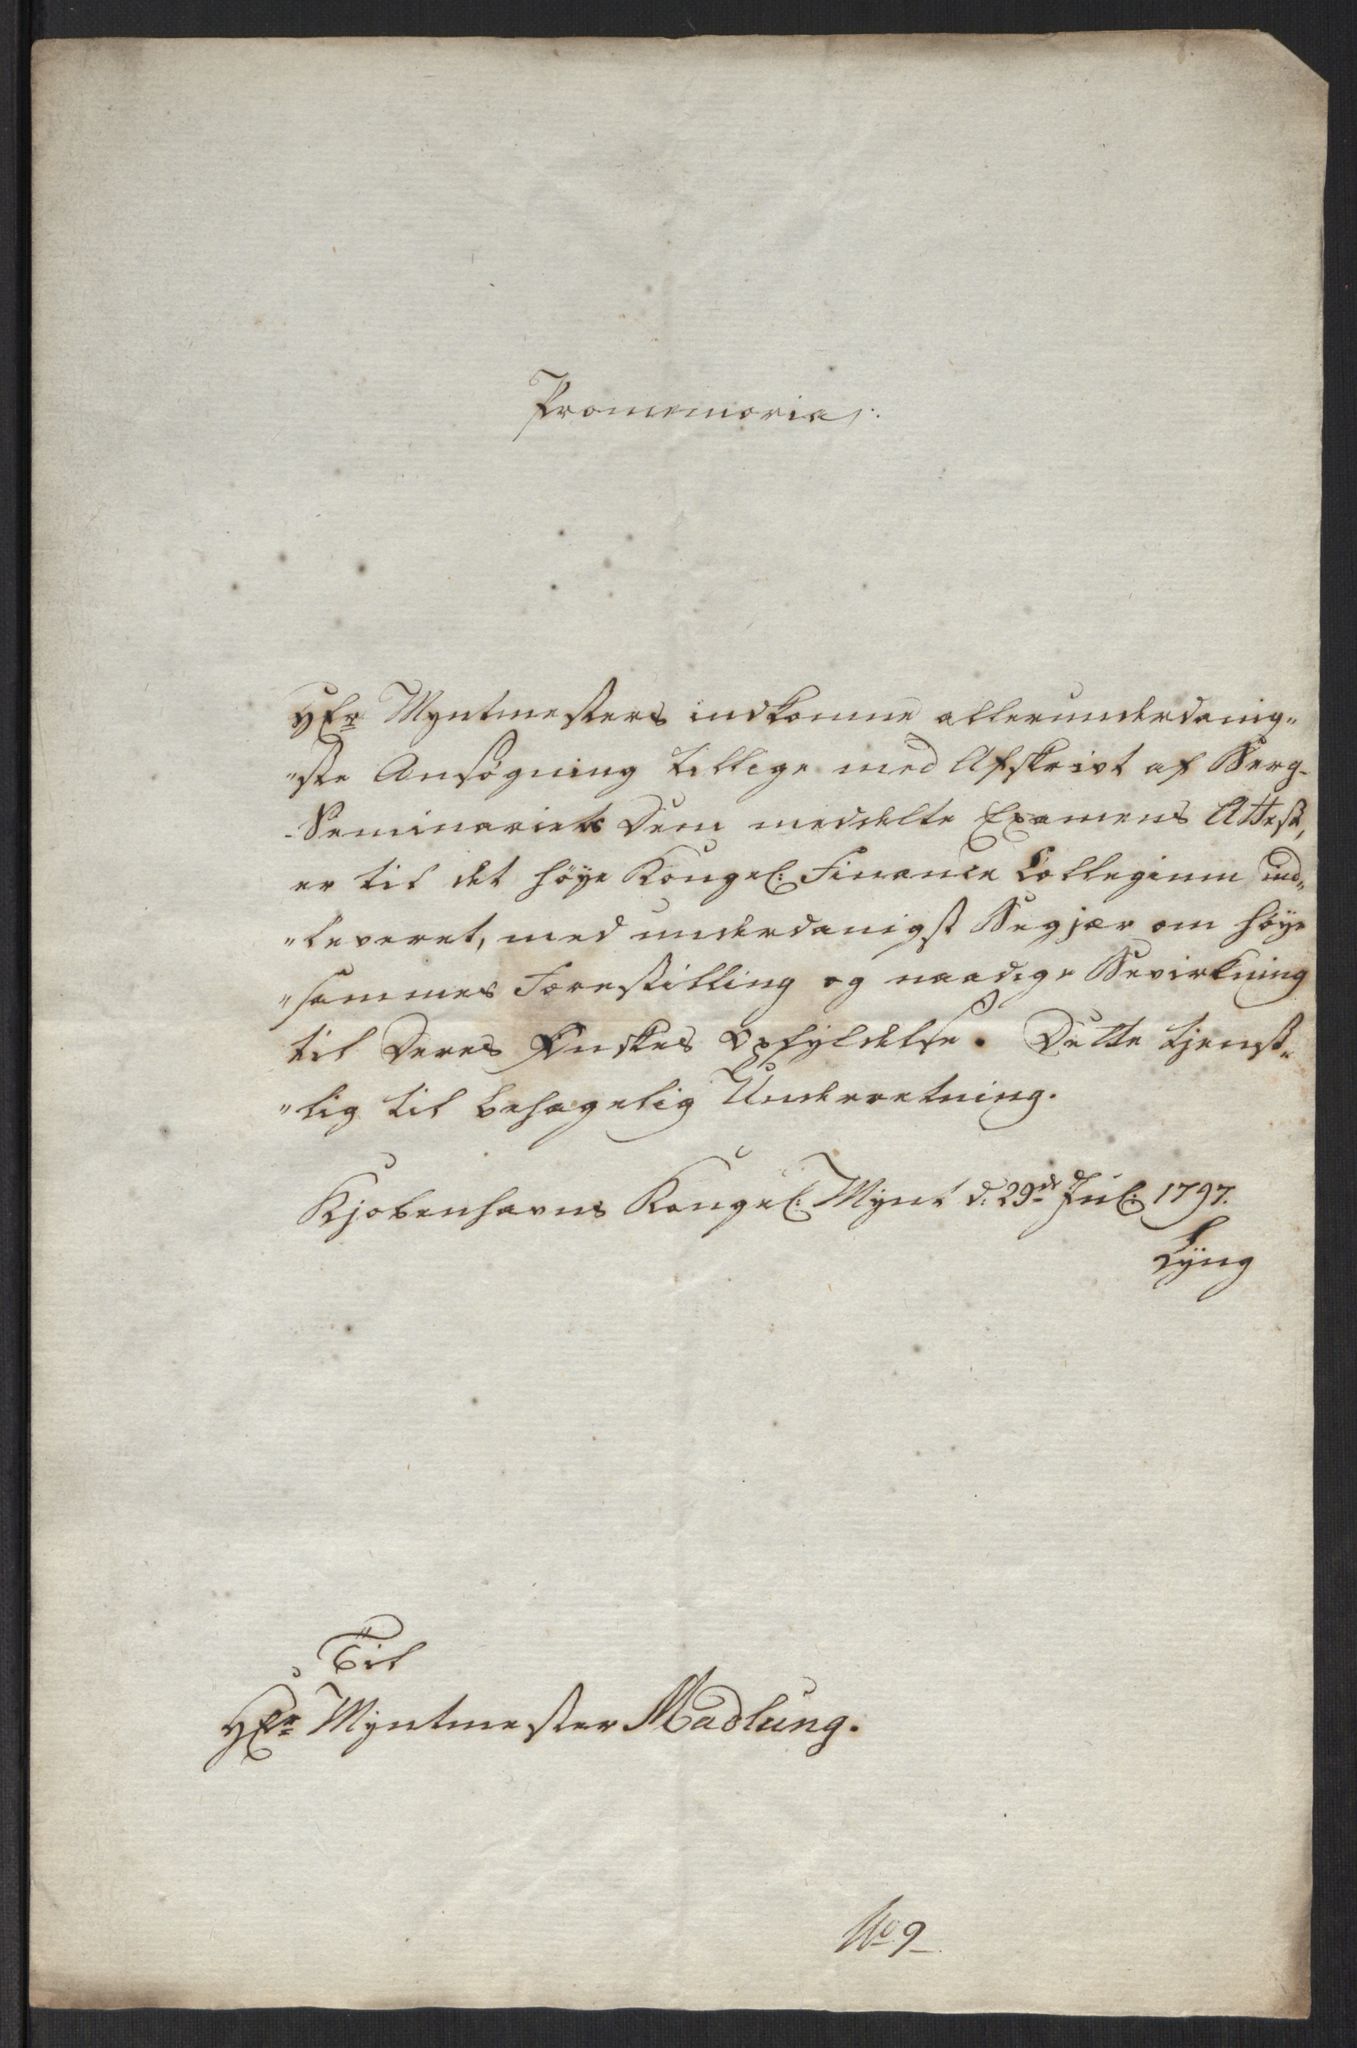 Promemoria.
HEr Myntmesters indkomne allerunderdanig„
„ste Ansøgning tillige med Afskrivt af Berg-
-Seminariets Dem meddelte Examens Attest,
er til det høye Kongel: Finance Collegium ind„
„leveret, med underdanigst Begjær om høye
„sammes Forestilling og naadige Bevirkning
til Deres Ønskes Opfyldelse. Dette tjenst„
„lig til behagelig Underretning.
Kjøbenhavns Kongel: Mynt d: 29de Jul: 1797.
Lyng
Til
HEr Myntmester Madlung.
No 9